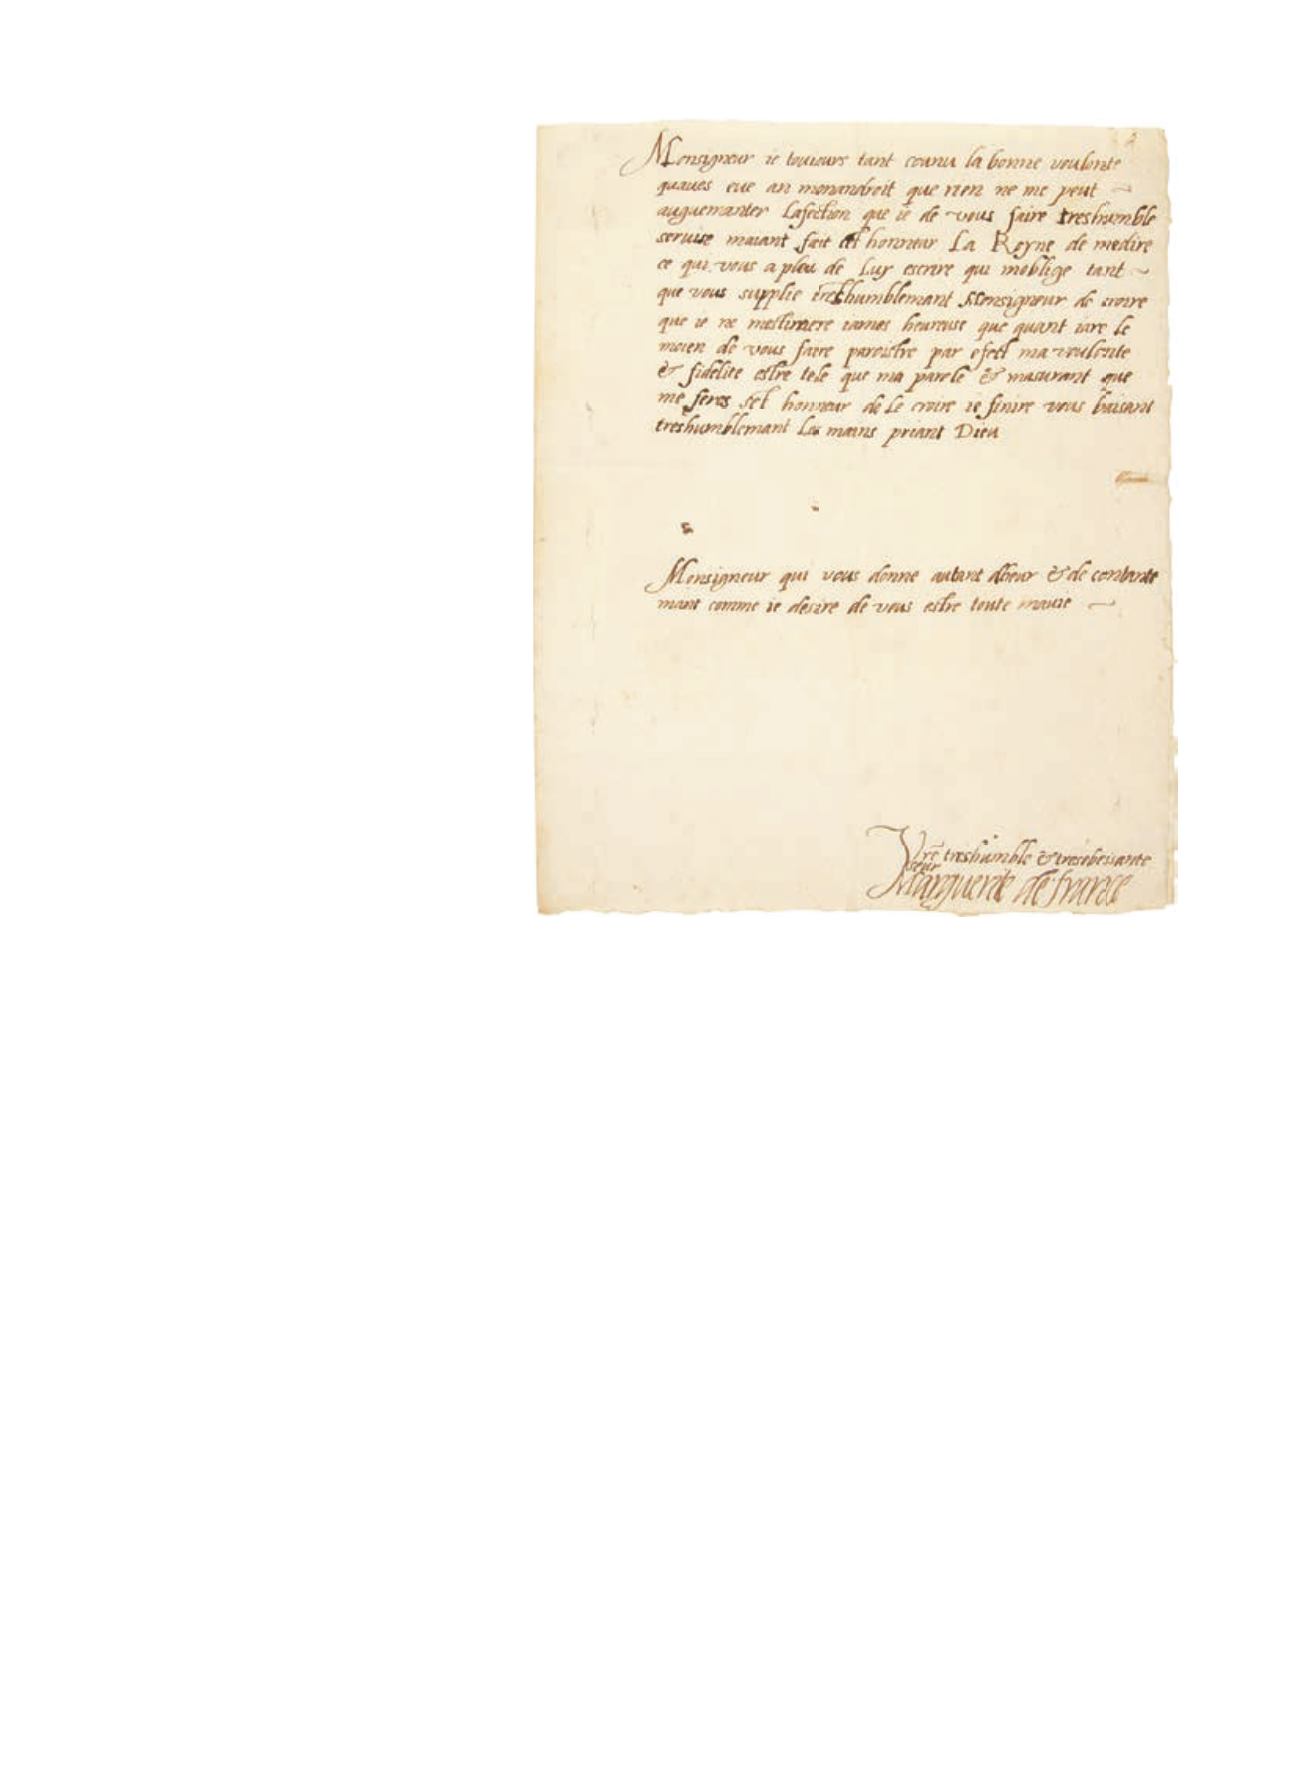 Monsigneur ie touiours tant counu la bonne voulonte
quaues eue an monandroit que rien ne me peut
auguemanter Lafection que ie de vous faire treshumble
seruise maiant fait cet honneur La Royne de medire
ce qui vous a pleu de Luy escrire qui moblige tant
que vous supplie treshumblemant Monsigneur de croire
que ie ne mestimere iames heureuse que quant iare le
moien de vous faire paroistre par efect ma voulonte
& fidelite estre tele que ma parole & masurant que
me feres set honneur de le croire ie finire vous baisant
treshumblemant les mains priant Dieu
Monsigneur qui vous donne autant dheur & de contante
mant comme ie desire de vous estre toute mauie
Vre treshumble & tresobeissante
seur
Marguerite de france